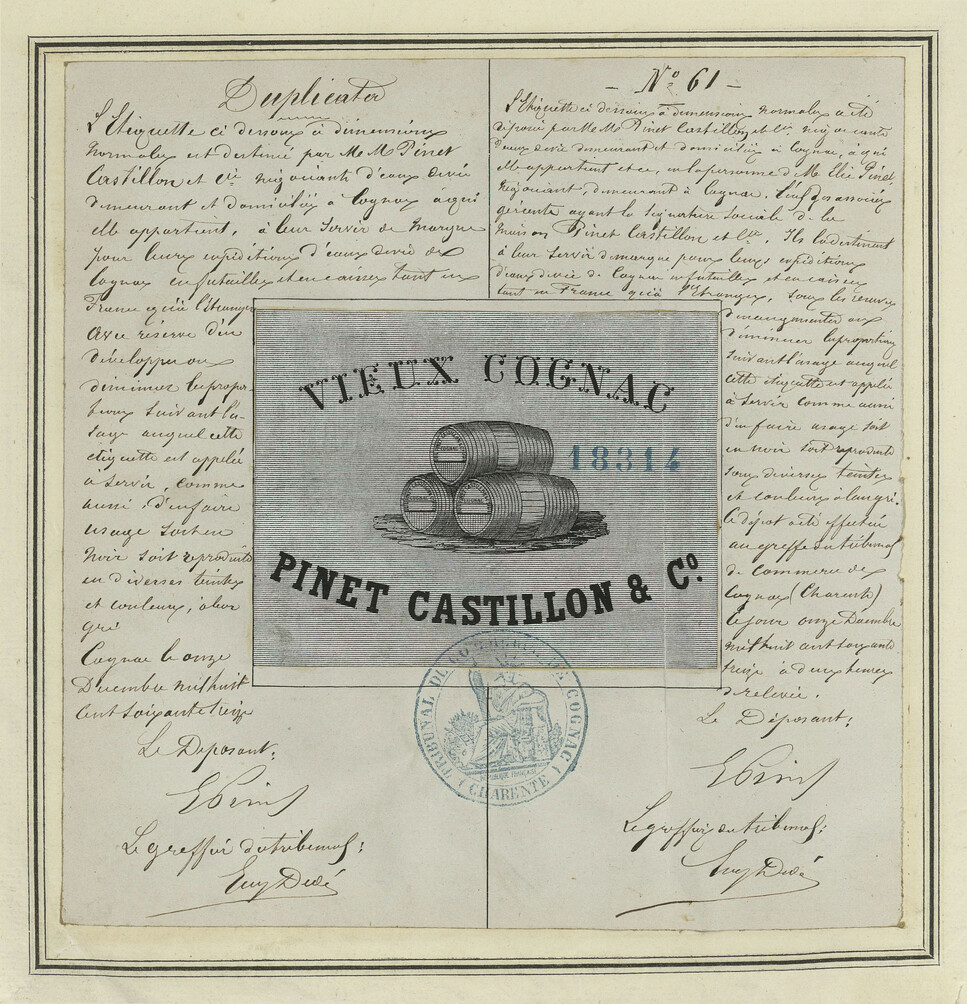 Duplicata
L'Etiquette ci dessous à dimensions
normales est destinée par MM Pinet
Castillon et Cie négociants d'eaux devie
demeurant et domiciliés à Cognac à qui
elle appartient, à leur servir de marque
pour leurs expéditions d'eaux devie de
Cognac en futailles et en caisses tant en
France qu'à l'étranger
avec réserve d'en
développer ou
diminuer les propor-
tions suivant l'u-
sage auquel cette
étiquette est appelée
a servir, comme
aussi d'en faire
usage soit en
noir soit reproduite
en diverses teintes
et couleurs, à leur
gré
Cognac le onze
Décembre mil huit
cent soixante treize
Le Déposant:
EPinet
Le greffier du tribunal:
- No 61 -
L'Etiquette ci dessous à dimensions normales a été
déposée par MM Pinet Castillon et Cie négociants
d'eaux devie demeurant et domiciliés à Cognac, à qui
elle appartient et ce, en la personne de M. Elie Pinet,
négociant, demeurant à Cognac, l'un des associés
gérants ayant la signature sociale de la
maison Pinet Castillon et Cie. Ils la destinent
à leur servir de marque pour leurs expéditions
d'eaux devie de Cognac en futailles et en caisses
tant en France qu'à l'Etranger, sous les réserves
d'en augmenter ou
diminuer les proportions
suivant l'usage auquel
cette étiquette est appelée
à servir comme aussi
d'en faire usage soit
en noir soit reproduite
sous diverses teintes
et couleurs à leur gré.
Ce dépôt a été effectué
au greffe du tribunal
de Commerce de
Cognac (Charente)
le jour onze Décembre
mil huit cent soixante
treize à deux heures
de relevée.
Le Déposant:
EPinet
Le greffier du tribunal:
VIEUX COGNAC
COGNAC
COGNAC
COGNAC
18314
PINET CASTILLON & Co.
TRIBUNAL DE COMMERCE DE COGNAC
(CHARENTE)